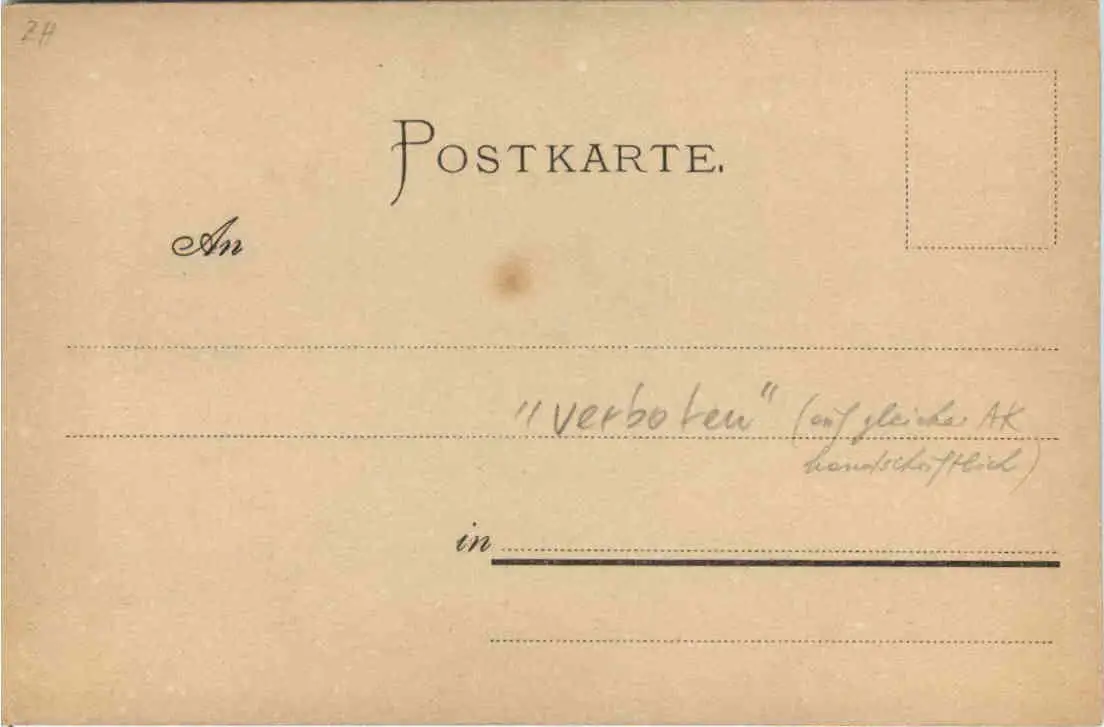 ZH
POSTKARTE.
An
"verboten" (auf gleicher AK
handschriftlich)
in